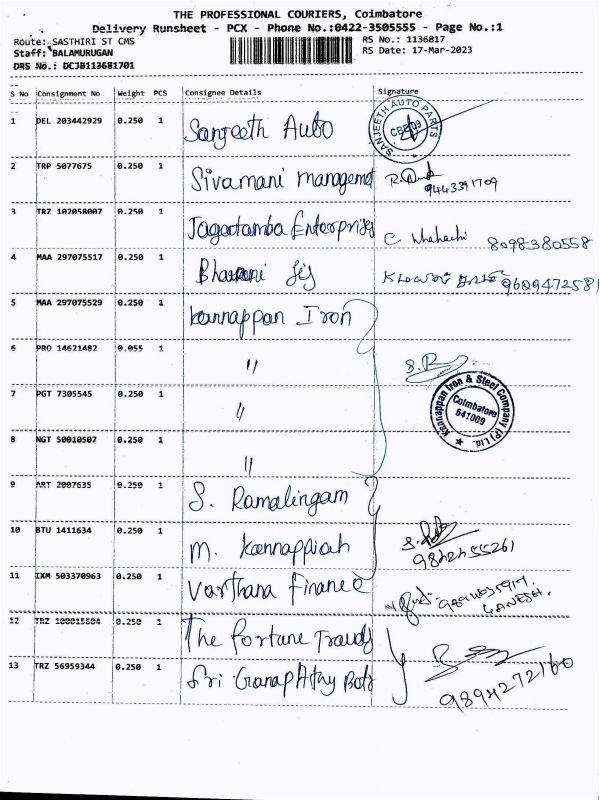 THE PROFESSIONAL COURIERS, Coimbatore
Delivery Runsheet - PCX - Phone No.:0422-3505555 - Page No.:1
Route: SASTHIRI ST CMS RS No.: 1136817
Staff: BALAMURUGAN RS Date: 17-Mar-2023
DRS No.: DCJB113681701
S No Consignment No Weight PCS Consignee Details Signature
1 DEL 203442929 0.250 1 Sanjeeth Auto SANJEETH AUTO PARTS
2 TRP 5077675 0.250 1 Sivamani management 9443391709
3 TRZ 102058007 0.250 1 Jagatamba Enterprises 8098380558
4 MAA 297075517 0.250 1 9609472581
5 MAA 297075529 0.250 1 Kannappan Iron
6 PRO 14621482 0.055 1 " S.R
7 PGT 7305545 0.250 1 " Kannappan Iron & Steel Company (P) Ltd. Coimbatore 641009
8 NGT 50010507 0.250 1 "
9 ART 2007635 0.250 1 S. Ramalingam
10 BTU 1411634 0.250 1 M. Kannappiah
11 IXM 503370963 0.250 1 Varthana Finance GANESH.
12 TRZ 0.250 1 The Fortune
13 TRZ 56959344 0.250 1 Sri Ganapathy 9894272160